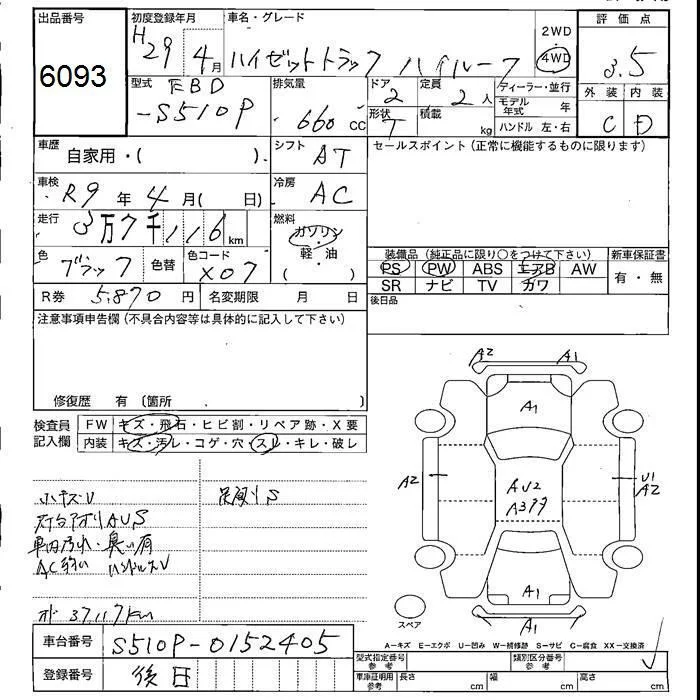 出品番号
6093
初度登録年月
H29年 4月
車名・グレード
ハイゼットトラック ハイルーフ
2WD
4WD
評価点
3.5
外装 内装
C D
型式
EBD
-S510P
排気量
660 cc
ドア
2
形状
T
定員
2人
積載
kg
ディーラー・並行
モデル年式 年
ハンドル 左・右
車歴
自家用・( ).
シフト
AT
セールスポイント(正常に機能するものに限ります)
車検
R9年 4月( 日)
冷房
AC
走行
3万7千116km
燃料
ガソリン
軽・油
色
ブラック
色替
色コード
X07
装備品(純正品に限り○をつけて下さい)
PS PW ABS エアB AW
SR ナビ TV カワ
新車保証書
有・無
R券 5,870円
名変期限 月 日
後日品
注意事項申告欄(不具合内容等は具体的に記入して下さい)
修復歴 有(箇所 )
検査員記入欄
FW キズ・飛石・ヒビ割・リペア跡・X要
内装 キズ・汚レ・コゲ・穴・スレ・キレ・破レ
小キズU
足廻りS
荷台アオリAUS
車内汚れ・臭い有
AC弱い ハンドルスレ
メーター 37117km
A2 A1
A1
A2
AU2
A3
U1
A2
A1
A1
スペア
A-キズ E-エクボ U-凹み W-補修跡 S-サビ C-腐食 XX-交換済
車台番号
S510P-0152405
登録番号
後日
型式指定番号
参考
類別区分番号
参考
車庫証明用
参考
長さ cm
幅 cm
高さ cm